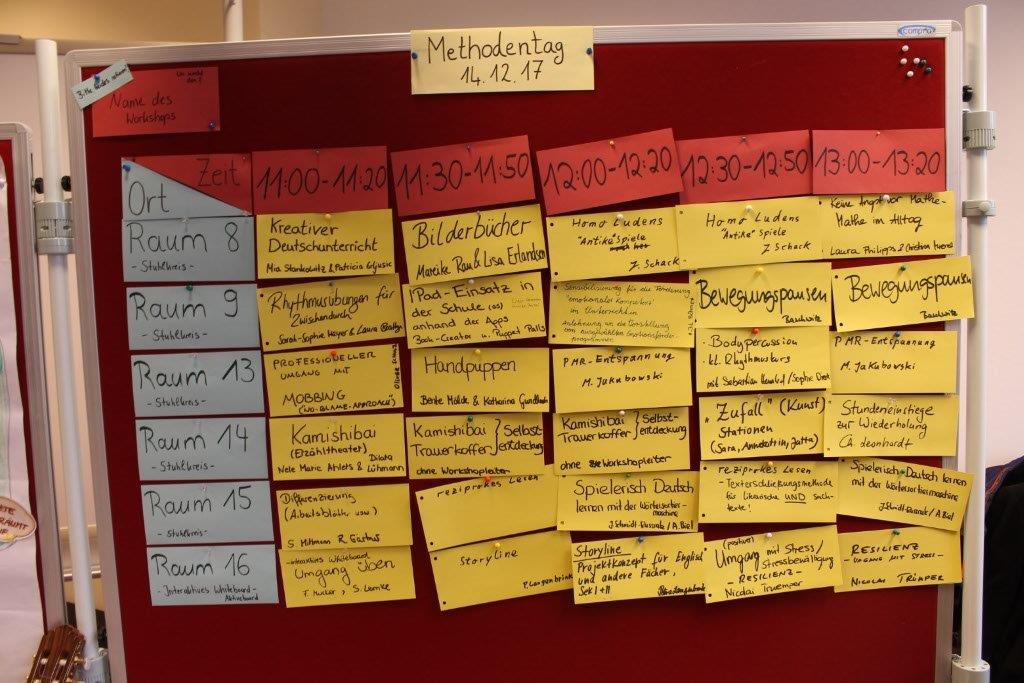 Methodentag
14.12.17
compra
Bitte
Name des
Workshops
Zeit
Ort
11:00-11:20
11:30-11:50
12:00-12:20
12:30-12:50
13:00-13:20
Raum 8
- Stuhlkreis -
Kreativer
Deutschunterricht
Mia Stankowitz & Patricia
Bilderbücher
Mareike Rau & Lisa Erlandsen
Homo Ludens
"Antike" Spiele
Z. Schack
Homo Ludens
"Antike" Spiele
Z Schack
Keine Angst vor Mathe-
Mathe im Alltag
Laura Philipps
Raum 9
- Stuhlkreis -
Rhythmusübungen für
Zwischendurch
Sarah-Sophie Meyer & Laura
IPad-Einsatz in
der Schule
anhand der Apps
Book-Creator u. Puppet Palls
Sensibilisierung für die Förderung
"emotionaler Kompetenz"
im Unterricht in
Anlehnung an die Vorstellung
von ausgewählten
Bewegungspausen
Bewegungspausen
Raum 13
- Stuhlkreis -
PROFESSIONELLER
UMGANG MIT
MOBBING
(NO-BLAME-APPROACH)
Handpuppen
Bente Molde & Katharina
PMR-Entspannung
M. Jakubowski
Bodypercussion
- kl. Rhythmuskurs
mit Sebastian
PMR-Entspannung
M. Jakubowski
Raum 14
- Stuhlkreis -
Kamishibai
(Erzähltheater)
Nele Marie Ahlets & Lühmann
Kamishibai } Selbst-
Trauerkoffer } entdeckung
ohne Workshopleiter
Kamishibai } Selbst-
Trauerkoffer } entdeckung
ohne Workshopleiter
"Zufall" (Kunst)
Stationen
Stundeneinstiege
zur Wiederholung
Leonhardt
Raum 15
- Stuhlkreis -
Differenzierung
(Arbeitsblätt. usw.)
reziprokes Lesen
Spielerisch Deutsch
lernen mit der Wörtersortier-
maschine
reziprokes Lesen
- Texterschließungsmethode
für literarische UND Sach-
texte!
Spielerisch Deutsch lernen
mit der Wörtersortiermaschine
Raum 16
- Interaktives Whiteboard -
Activboard
- interaktives Whiteboard -
Umgang üben
Storyline
P. Langenbrink
Storyline
Projektkonzept für Englisch
und andere Fächer,
Sek I + II
(positiver)
Umgang mit Stress/
Stressbewältigung
- RESILIENZ -
Nicolai Truemper
- RESILIENZ -
UMGANG MIT STRESS -
NICOLAI TRÜMPER